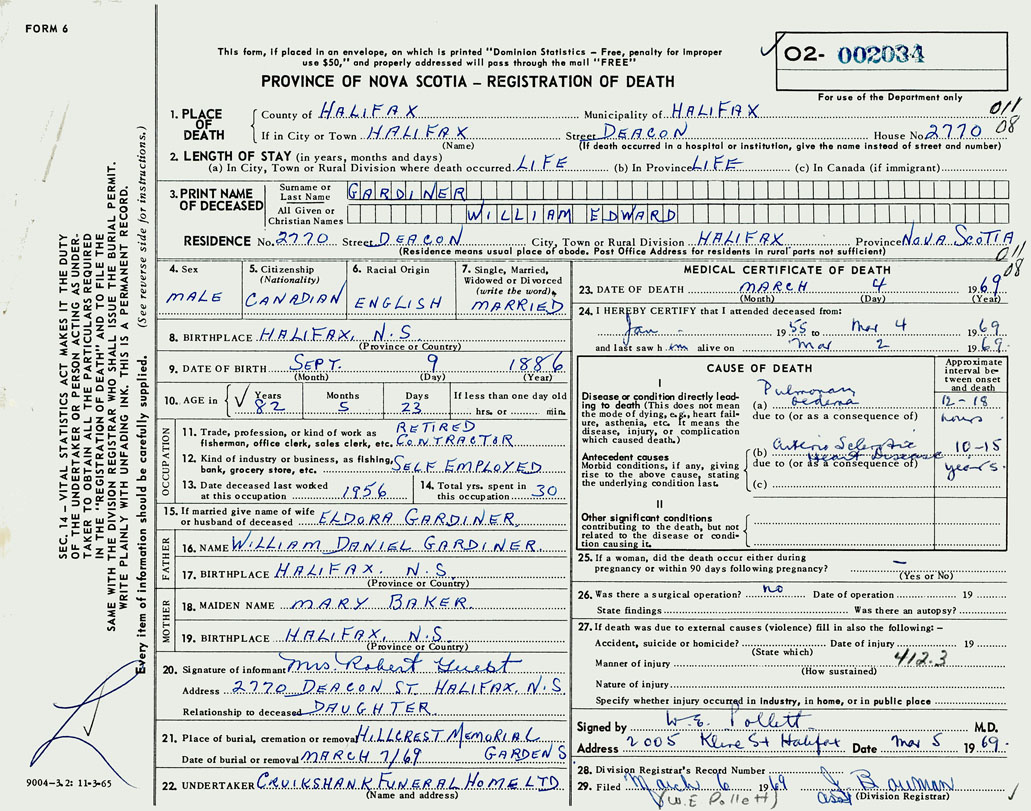 FORM 6
This form, if placed in an envelope, on which is printed "Dominion Statistics – Free, penalty for improper
use $50," and properly addressed will pass through the mail "FREE"
PROVINCE OF NOVA SCOTIA – REGISTRATION OF DEATH
O2- 002034
For use of the Department only
011
08
1. PLACE OF DEATH
County of HALIFAX Municipality of HALIFAX
If in City or Town HALIFAX Street DEACON House No. 2770
(Name) (If death occurred in a hospital or institution, give the name instead of street and number)
2. LENGTH OF STAY (in years, months and days)
(a) In City, Town or Rural Division where death occurred LIFE (b) In Province LIFE (c) In Canada (if immigrant)
3. PRINT NAME OF DECEASED
Surname or Last Name GARDINER
All Given or Christian Names WILLIAM EDWARD
RESIDENCE No. 2770 Street DEACON City, Town or Rural Division HALIFAX Province NOVA SCOTIA
(Residence means usual place of abode. Post Office Address for residents in rural parts not sufficient)
011
08
4. Sex
MALE
5. Citizenship
(Nationality)
CANADIAN
6. Racial Origin
ENGLISH
7. Single, Married,
Widowed or Divorced
(write the word)
MARRIED
8. BIRTHPLACE HALIFAX, N.S.
(Province or Country)
9. DATE OF BIRTH SEPT. 9 1886
(Month) (Day) (Year)
10. AGE in Years Months Days If less than one day old
82 5 23 hrs. or min.
OCCUPATION
11. Trade, profession, or kind of work as RETIRED
fisherman, office clerk, sales clerk, etc. CONTRACTOR
12. Kind of industry or business, as fishing,
bank, grocery store, etc. SELF EMPLOYED
13. Date deceased last worked
at this occupation 1956
14. Total yrs. spent in
this occupation 30
15. If married give name of wife
or husband of deceased ELDORA GARDINER.
FATHER
16. NAME WILLIAM DANIEL GARDINER.
17. BIRTHPLACE HALIFAX. N.S.
(Province or Country)
MOTHER
18. MAIDEN NAME MARY BAKER.
19. BIRTHPLACE HALIFAX. N.S.
(Province or Country)
20. Signature of informant Mrs. Robert
Address 2770 DEACON ST. HALIFAX. N.S
Relationship to deceased DAUGHTER.
21. Place of burial, cremation or removal HILLCREST MEMORIAL
GARDENS
Date of burial or removal MARCH 7/69
22. UNDERTAKER CRUIKSHANK FUNERAL HOME LTD
(Name and address)
MEDICAL CERTIFICATE OF DEATH
23. DATE OF DEATH MARCH 4 1969
(Month) (Day) (Year)
24. I HEREBY CERTIFY that I attended deceased from:
Jan 1955 to Mar 4 1969
and last saw him alive on Mar 2 1969.
CAUSE OF DEATH
Approximate
interval be-
tween onset
and death
I
Disease or condition directly lead-
ing to death (This does not mean
the mode of dying, e.g., heart fail-
ure, asthenia, etc. It means the
disease, injury, or complication
which caused death.)
(a) Pulmonary
oedema
12-18
hours
due to (or as a consequence of)
Antecedent causes
Morbid conditions, if any, giving
rise to the above cause, stating
the underlying condition last.
(b) Arterio Sclerotic
Heart Disease
10-15
years.
due to (or as a consequence of)
(c)
II
Other significant conditions
contributing to the death, but not
related to the disease or condi-
tion causing it.
25. If a woman, did the death occur either during
pregnancy or within 90 days following pregnancy? –
(Yes or No)
26. Was there a surgical operation? no Date of operation 19
State findings Was there an autopsy?
27. If death was due to external causes (violence) fill in also the following: –
Accident, suicide or homicide? Date of injury 19
(State which)
Manner of injury 412.3
(How sustained)
Nature of injury
Specify whether injury occurred in industry, in home, or in public place
Signed by W.E. Pollett M.D.
Address 2005 Kline St Halifax Date Mar 5 1969.
28. Division Registrar's Record Number
29. Filed March 6 1969 J Bauman
(W.E Pollett) asst (Division Registrar)
SEC. 14 – VITAL STATISTICS ACT MAKES IT THE DUTY
OF THE UNDERTAKER OR PERSON ACTING AS UNDER-
TAKER TO OBTAIN ALL THE PARTICULARS REQUIRED
IN THE "REGISTRATION OF DEATH" AND TO FILE THE
SAME WITH THE DIVISION REGISTRAR WHO SHALL ISSUE THE BURIAL PERMIT.
WRITE PLAINLY WITH UNFADING INK. THIS IS A PERMANENT RECORD.
Every item of information should be carefully supplied. (See reverse side for instructions.)
9004-3.2: 11-3-65